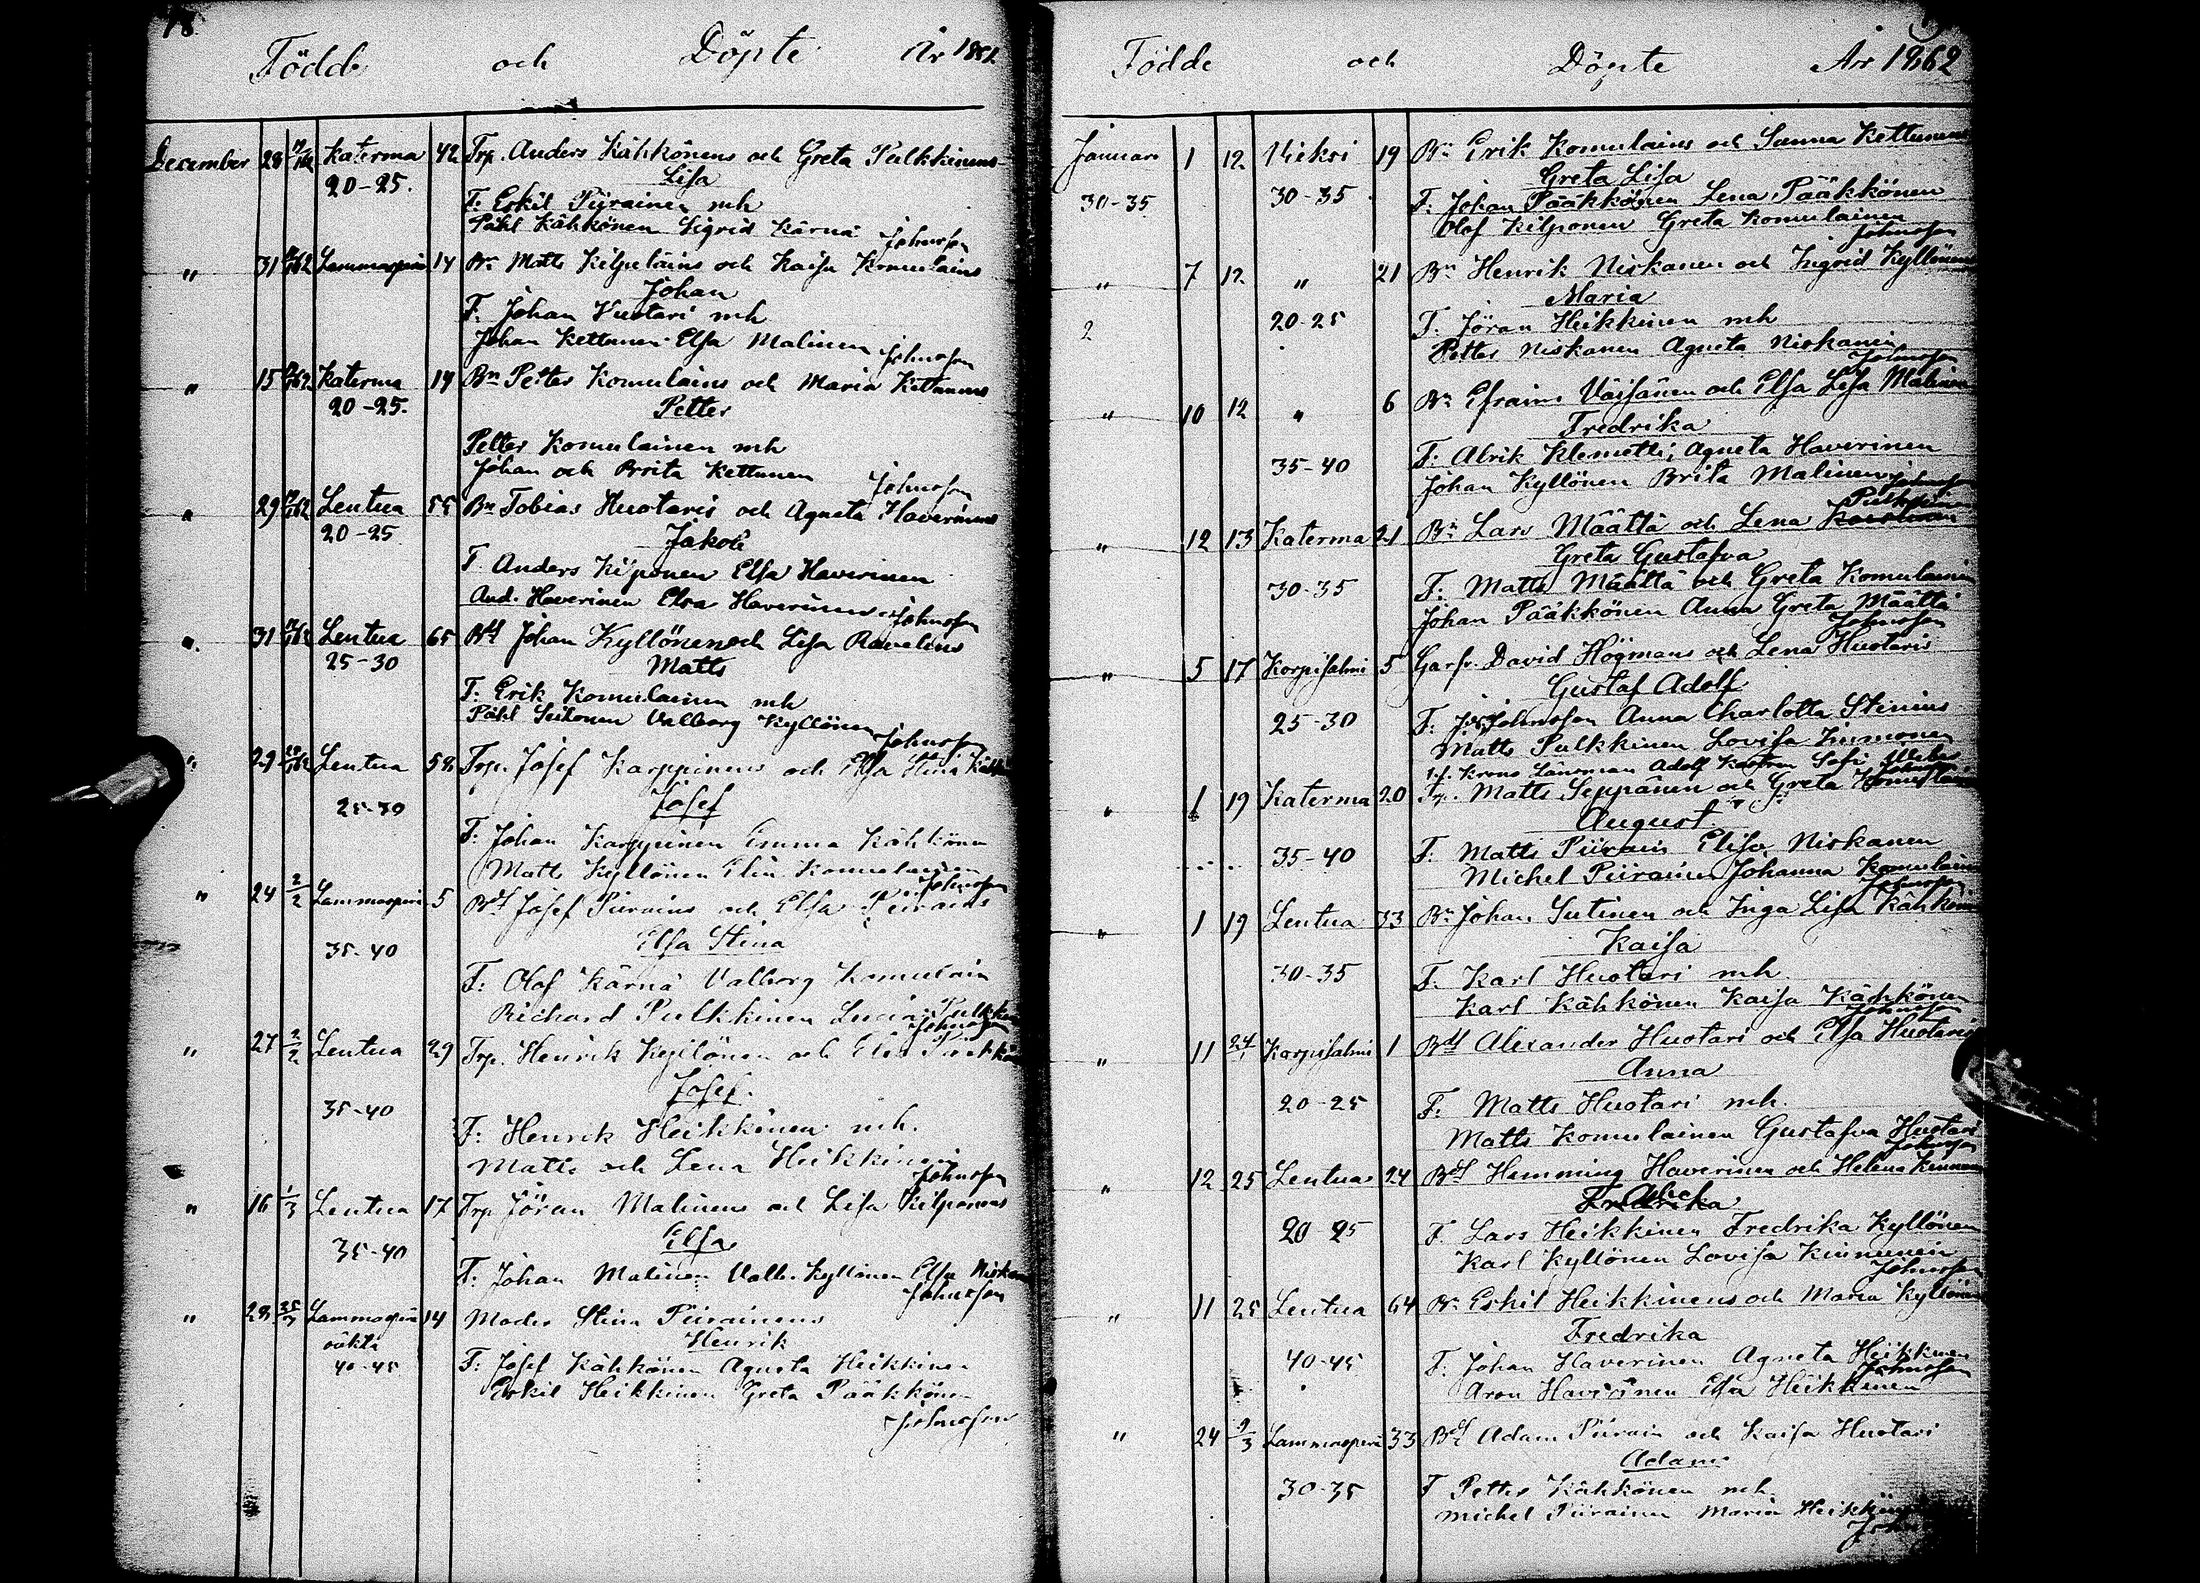 78
Födde och Döpte År 1861
December 28 Katerma 42 Trp. Anders Kähkönens och Greta Pulkkinens
20-25. Lisa
F: Eskil Piirainen mh
Påhl Kähkönen Sigrid Kärnä Johnsson
" 31 Lammasperä 14 Bn Matts Kilpeläins och Kaisa Komulains
Johan
F: Johan Huotari mh
Johan Kettunen Elsa Malinen Johnsson
" 15 Katerma 19 Bn Petter Komulains och Maria Kettunens
20-25. Petter
Petter Komulainen mh
Johan och Brita Kettunen Johnsson
" 29 Lentua 55 Bn Tobias Huotaris och Agneta Haverinens
20-25 Jakob
F. Anders Kilponen Elsa Haverinen
And. Haverinen Elsa Haverinen Johnsson
" 31 Lentua 65 Johan Kyllönen och Lisa
25-30 Matts
F: Erik Komulainen mh
Påhl Valborg Kyllönen Johnsson
" 29 Lentua 58 Trp. Josef Karppinens och Elsa Stina
25-30 Josef
F: Johan Karppinen Emma Kähkönen
Matts Kyllönen Elin Komulainen
Johnsson
" 24 2/2 Lammasperä 5 Josef Piirains och Elsa Piirains
35-40 Elsa Stina
F: Olof Kärnä Valborg Komulain
Richard Pulkkinen Lucia
Johnsson
" 27 2/2 Lentua 29 Trp. Henrik Kyllönen och
Josef.
35-40
F: Henrik Heikkinen mh.
Matts och Lena Heikkinen
Johnsson
" 16 1/3 Lentua 17 Trp Jöran Malinens och Lisa Kilponens
35-40 Elsa
F: Johan Malinen Valb. Kyllönen Elsa
Johnsson
" 28 Lammasperä 14 Moder Stina Piirainens
oäkta Henrik
40-45 F: Josef Kähkönen Agneta Heikkinen
Eskil Heikkinen Greta Pääkkönen
Johnsson
Födde och Döpte År 1862
Januari 1 12 Wieksi 19 Bn Erik Komulains och Sanna Kettunens
Greta Lisa
30-35 30-35 F: Johan Pääkkönen Lena Pääkkönen
Olof Kilponen Greta Komulainen
Johnsson
" 7 12 " 21 Bn Henrik Niskanen och Ingrid Kyllönen
Maria
2 20-25 F: Jöran Heikkinen mh
Petter Niskanen Agneta Niskanen
Johnsson
" 10 12 " 6 Bn Efraim Väisänen och Elsa Lisa Malinen
Fredrika
35-40 F: Alrik Klemetti, Agneta Haverinen
Johan Kyllönen Brita Malinen Johnsson
" 12 13 Katerma 21 Bn Lars Määttä och Lena
Greta Gustafva
30-35 F: Matts Määttä och Greta Komulainen
Johan Pääkkönen Anna Greta Määttä
Johnsson
" 5 17 Korpisalmi 5 Garfv. David Högmans och Lena Huotaris
Gustaf Adolf
25-30 F: Johnsson Anna Charlotta Stenius
Matts Pulkkinen Lovisa Immonen
Krono Länsman Adolf
" 1 19 Katerma 20 Matts Seppänen och Greta
August
35-40 F: Matts Piirain Elisa Niskanen
Michel Piirainen Johanna Komulain
Johnsson
" 1 19 Lentua 33 Bn Johan Sutinen och Inga Lisa Kähkönen
Kaisa
30-35 F. Karl Huotari mh.
Karl Kähkönen Kaisa Kähkönen
Johnsson
" 11 24 Korpisalmi 1 Alexander Huotari och Elsa Huotaris
Anna
20-25 F: Matts Huotari mh.
Matts Komulainen Gustafva Huotari
Johnsson
" 12 25 Lentua 24 Hemming Haverinen och Helena Kinnunen
20-25 F. Lars Heikkinen Fredrika Kyllönen
Karl Kyllönen Lovisa Kinnunen
Johnsson
" 11 25 Lentua 64 Bn Eskil Heikkinens och Maria Kyllönen
Fredrika
40-45 F: Johan Haverinen Agneta Heikkinen
Johnsson
Aron Haverinen Elsa Heikkinen
" 24 9/3 Lammasperä 33 Adam Piirain och Kaisa Huotari
Adam
30-35 F Petter Kähkönen mh.
Michel Piirainen Maria